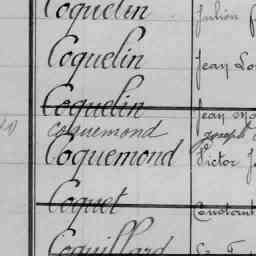 Coquelin Julien
Coquelin Jean Lo
Coquelin Jean
Coquemond Joseph
Coquemond Victor J
Coquet Constant
Coquillard